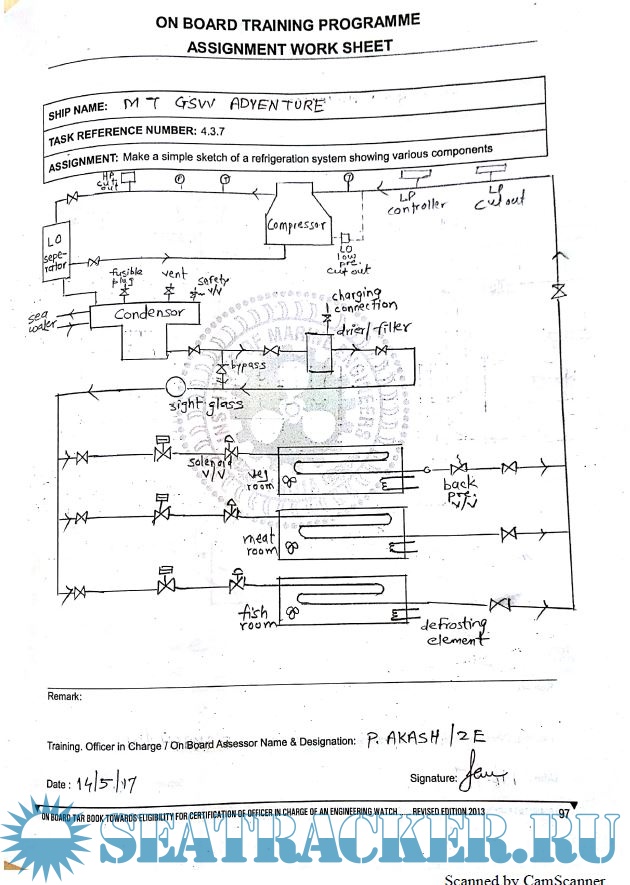 ON BOARD TRAINING PROGRAMME
ASSIGNMENT WORK SHEET
SHIP NAME: MT GSW ADVENTURE
TASK REFERENCE NUMBER: 4.3.7
ASSIGNMENT: Make a simple sketch of a refrigeration system showing various components
HP
cut
out
P
T
T
LP
controller
LP
cut out
Compressor
LO
sepe-
rator
LO
low
pre.
cut out
fusible
plug
vent
safety
v/v
sea
water
Condensor
charging
connection
drier/filler
bypass
sight glass
solenoid
v/v
veg
room
back
pre.
v/v
meat
room
fish
room
defrosting
element
Remark:
Training. Officer in Charge / On Board Assessor Name & Designation: P. AKASH / 2E
Date: 14/5/17
Signature:
ON BOARD TAR BOOK TOWARDS ELIGIBILITY FOR CERTIFICATION OF OFFICER IN CHARGE OF AN ENGINEERING WATCH REVISED EDITION 2013 97
SEATRACKER.RU
Scanned by CamScanner